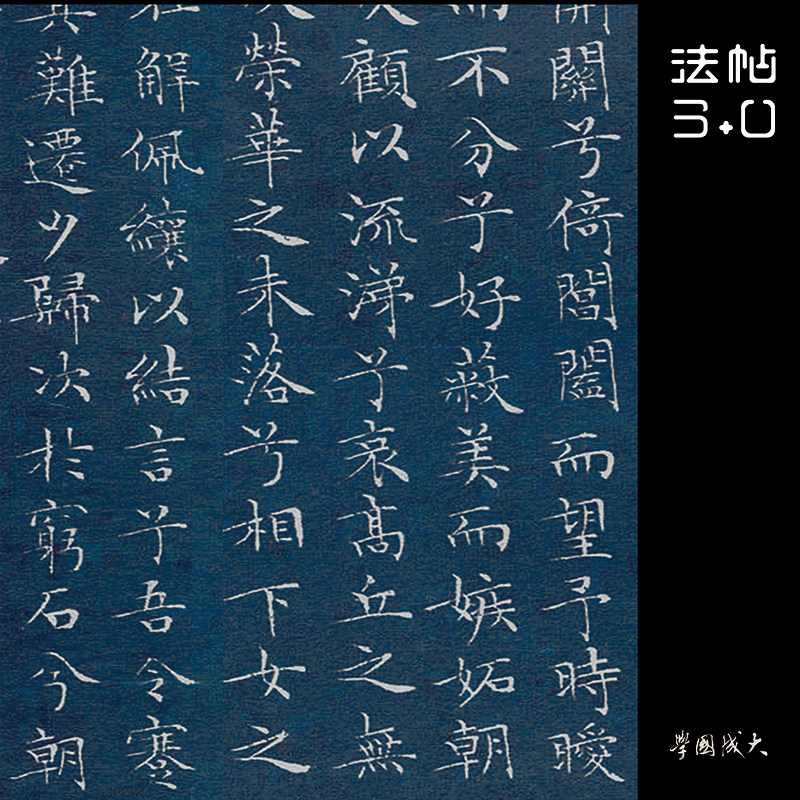 法帖
3.0
開關兮倚閶闔而望予時曖
而不分兮好蔽美而嫉妬朝
顧以流涕兮哀髙丘之無
榮華之未落兮相下女之
在解佩纕以結言兮吾令蹇
其難遷夕歸次於窮石兮朝
大成國學